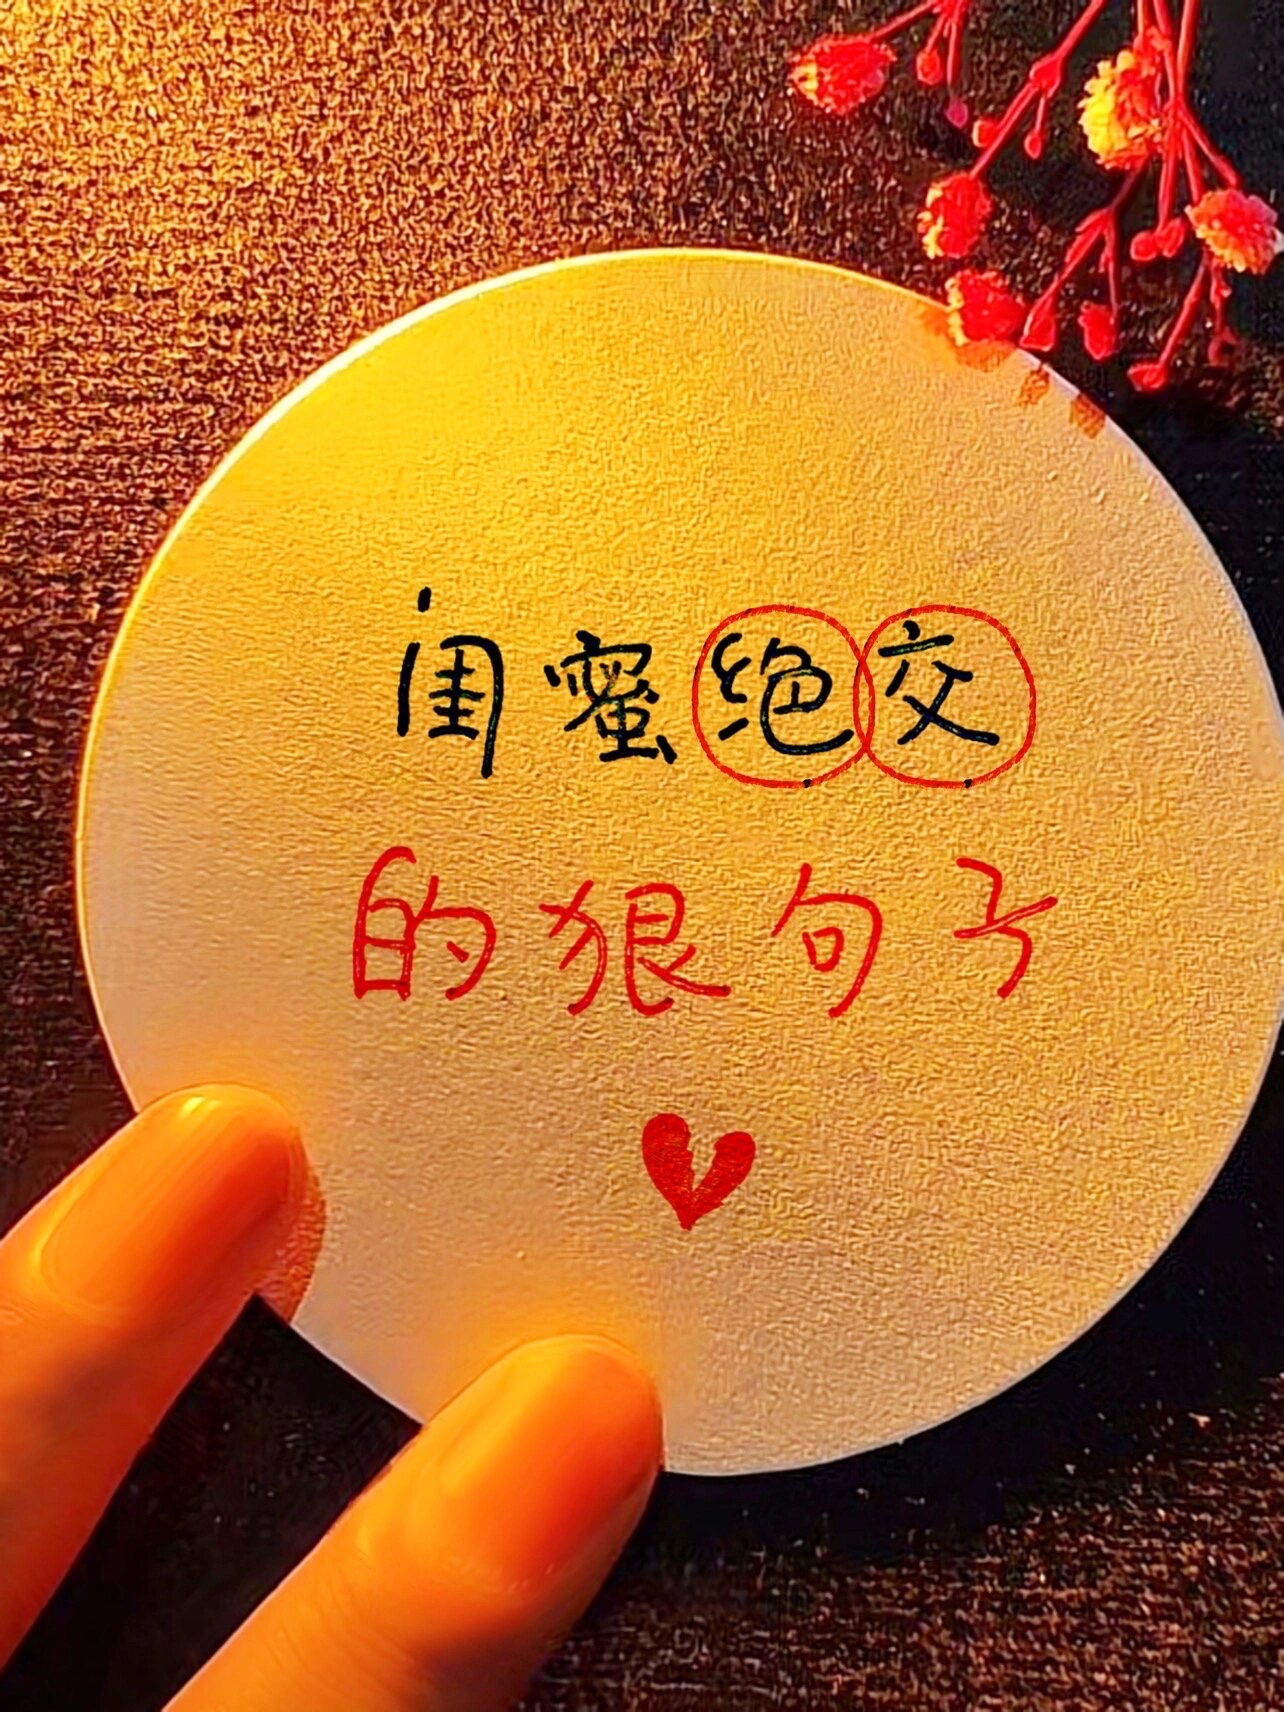 闺蜜绝交
的狠句子